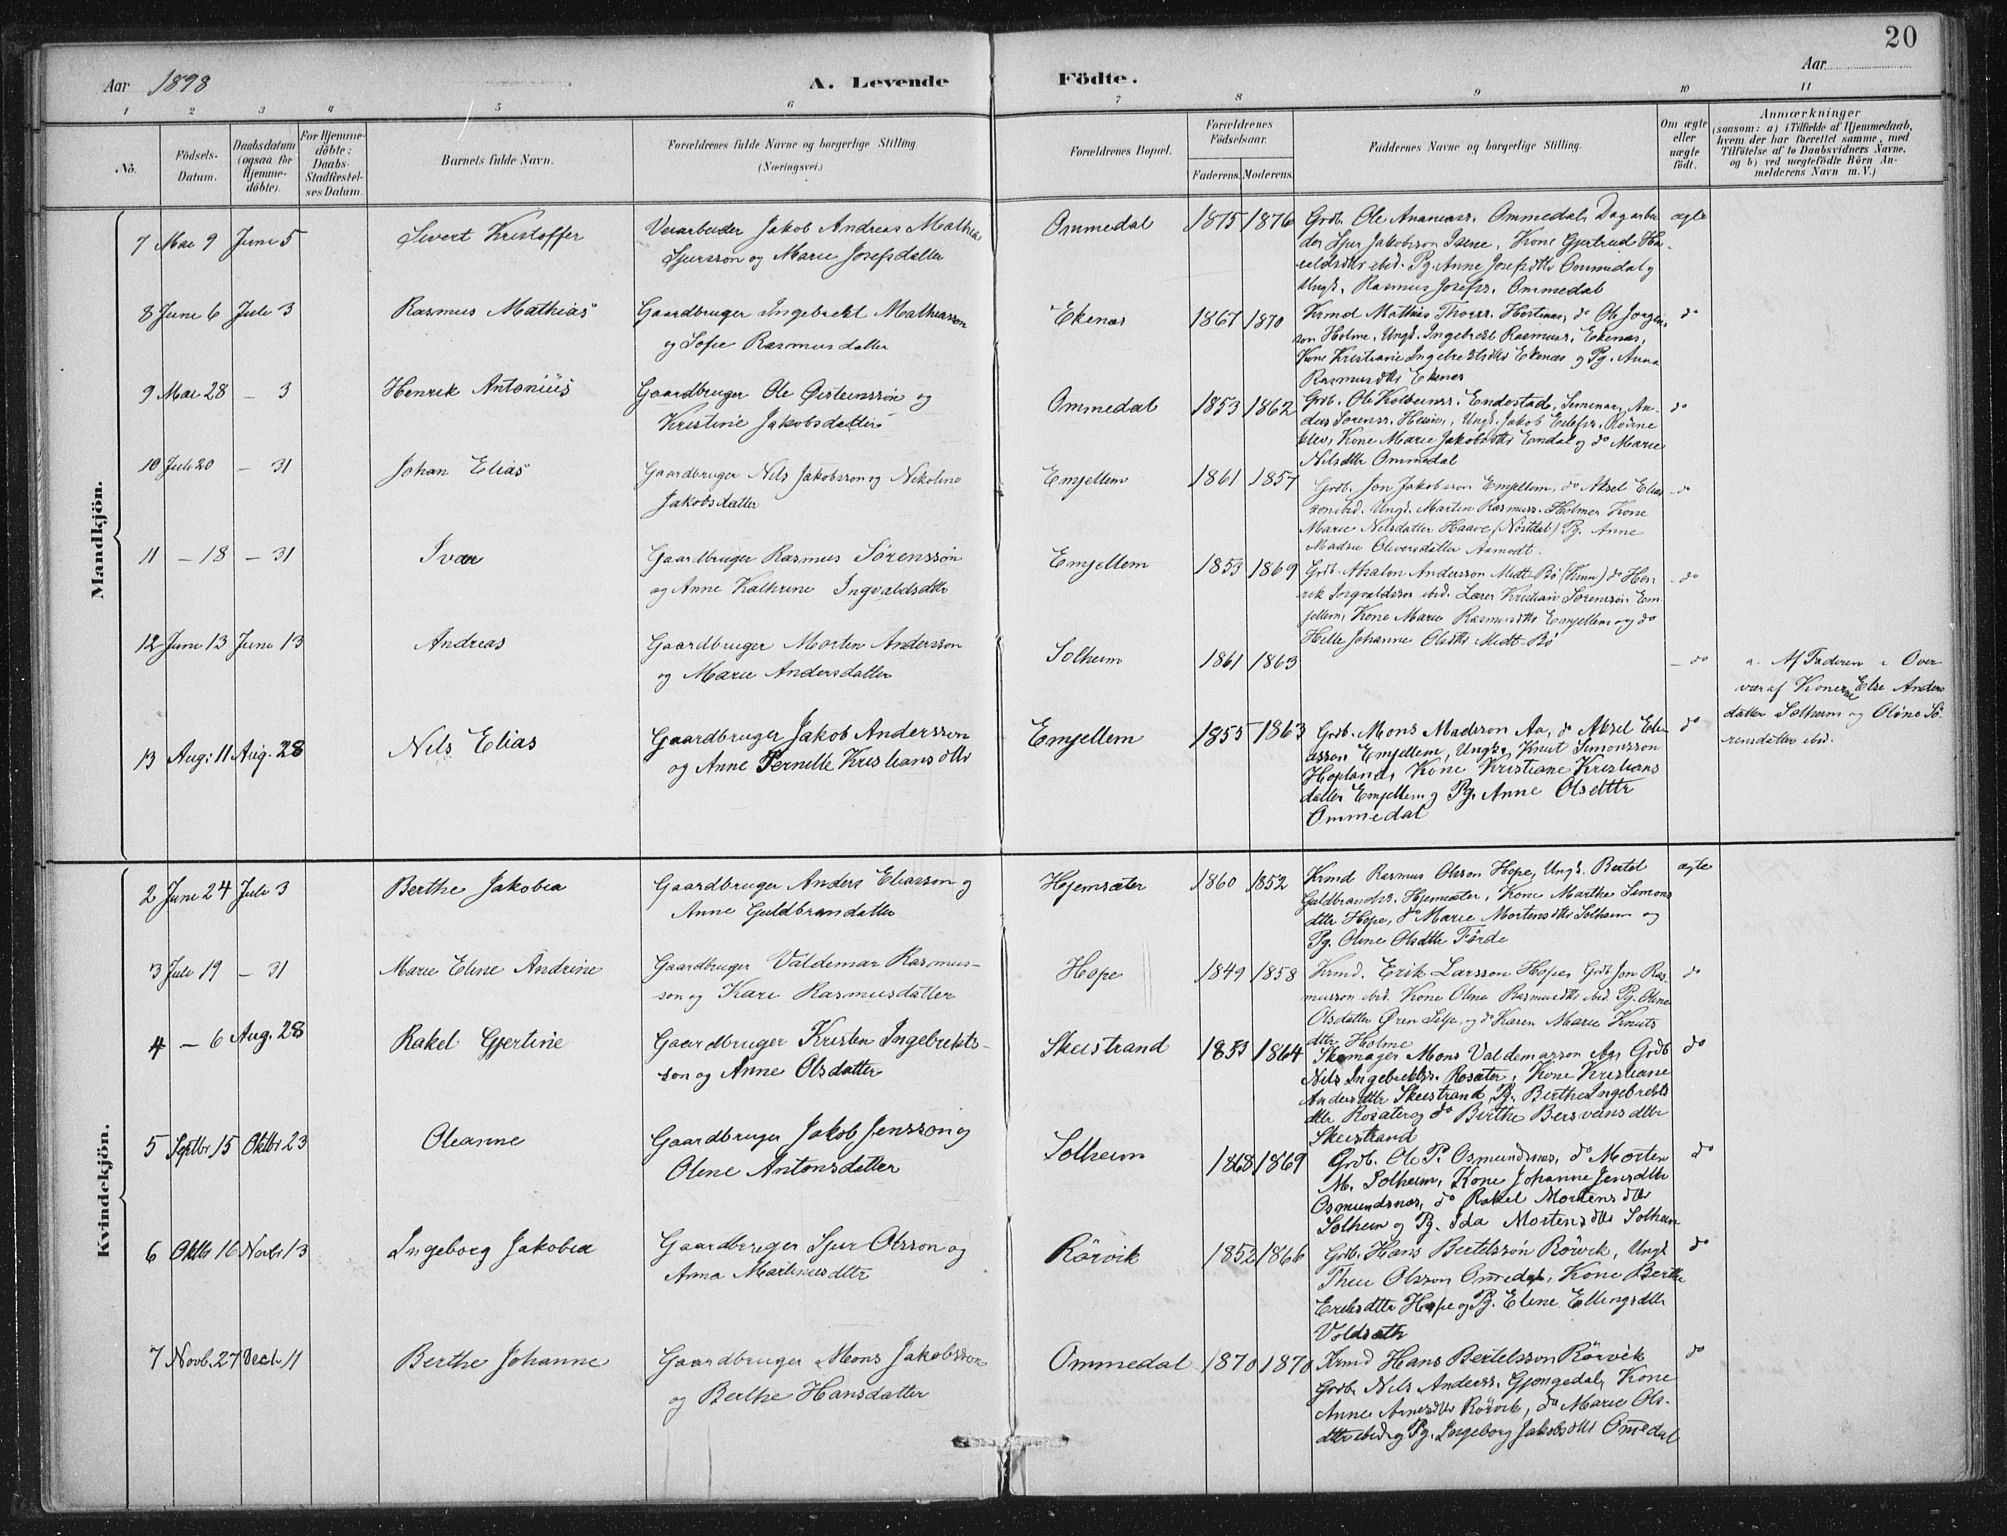 20
Aar 1898
A. Levende Födte.
Aar
1 2 3 4 5 6 7 8 9 10 11
No.
Födsels-Datum.
Daabsdatum (ogsaa for Hjemme-döbte).
For Hjemme-döbte: Daabs-Stadfæstelses Datum.
Barnets fulde Navn.
Forældrenes fulde Navne og borgerlige Stilling.
(Næringsvei.)
Forældrenes Bopæl.
Forældrenes Födselsaar.
Faderens. Moderens.
Faddernes Navne og borgerlige Stilling.
Om ægte eller uægte födt.
Anmærkninger
(saasom: a) i Tilfælde af Hjemmedaab, hvem der har forrettet samme, med Tilföielse af to Daabsvidners Navne. og b) ved uægtefödte Börn Anmelderens Navn m. V.)
Mandkjön.
7 Mai 9 Juni 5 Sivert Kristoffer
Veiarbeider Jakob Andreas Mathias
Sjursson og Marie Josefsdatter
Ommedal 1875 1876
Grdb. Ole Ananiass. Ommedal, Dagarbei
der Sjur Jakobsson Isene, Kone Gjertrud Ha-
raldsdttr ibid. Pg. Anne Josefsdttr Ommedal og
Ungk. Rasmus Josefss. Ommedal
ægte
8 Juni 6 Juli 3 Rasmus Mathias
Gaardbruger Ingebrekt Mathiasson
og Sofie Rasmusdatter
Ekenæs 1867 1870
Krmd Mathias Thorss. Hestenæs, do Ole Jörgen
son Holme, Ungk. Ingebrekt Rasmuss. Ekenæs,
Kone Kristiane Ingebrektsdttr Ekenæs og Pg. Anna
Rasmusdttr Ekenæs
do
9 Mai 28 – 3 Henrik Antonius
Gaardbruger Ole Øisteinssön og
Kristine Jakobsdatter
Ommedal 1853 1862
Grdb. Ole Kolbeinss. Endestad, Seminar, An-
ders Sörenss. Heien, Ungk. Jakob Eilefss. Rönne
klev, Kone Marie Jakobsdttr Emdal og do Marie
Nilsdttr Ommedal
do
10 Juli 20 – 31 Johan Elias
Gaardbruger Nils Jakobsson og Nikoline
Jakobsdatter
Emjellem 1861 1857
Grdb. Jon Jakobsson Emjellem, do Aksel Elias
son ibid. Ungk. Martin Rasmuss. Holme, Kone
Marie Nilsdatter Haave (Norddal) Pg. Anne
Madsie Oliversdatter Aamodt.
do
11 – 18 – 31 Ivar
Gaardbruger Rasmus Sörenssön
og Anne Kathrine Ingvaldsdttr
Emjellem 1853 1869
Grdb. Absalon Andersson Midt-Bö (Kinn) do Hen
rik Ingvaldsson ibid. Lærer Kristian Sörenssön Em-
jellem, Kone Marie Rasmusdttr Emjellem og do
Helle Johanne Olsdttr Midt-Bö
do
12 Juni 13 Juni 13 Andreas
Gaardbruger Morten Andersson
og Marie Andersdatter
Solheim 1861 1863
do
a. Af Faderen i Over
vær af Konerne Else Anders
datter Solheim og Oline Sö-
rensdatter ibid.
13 Aug. 11 Aug. 28 Nils Elias
Gaardbruger Jakob Andersson
og Anne Pernille Kristiansdttr
Emjellem 1855 1863
Grdb. Mons Madsson Aa, do Aksel Eli-
asson Emjellem, Ungk. Knut Simonsson
Hopland, Kone Kristiane Kristians
datter Emjellem og Pg. Anne Olsdttr
Ommedal
do
Kvindekjön.
2 Juni 24 Juli 3 Berthe Jakobia
Gaardbruger Anders Eliasson og
Anne Guldbrandatter
Hjemsæter 1860 1852
Krmd Rasmus Olsson Hope, Ungk. Bertel
Guldbrandss. Hjemsæter, Kone Marthe Simons
dttr Hope, do Marie Mortensdttr Solheim og
Pg. Oline Olsdttr Förde
ægte
3 Juli 19 – 31 Marie Eline Andrine
Gaardbruger Valdemar Rasmus-
son og Kari Rasmusdatter
Hope 1849 1858
Krmd. Erik Larsson Hope, Grdb. Jon Ras-
musson ibid. Kone Oline Rasmusdttr ibid. Pg. Oline
Olsdatter Øren Selje, og do Karen Marie Knuts
dttr Holme
do
4 – 6 Aug. 28 Rakel Gjertine
Gaardbruger Kristen Ingebrikts-
son og Anne Olsdatter
Skeistrand 1853 1864
Skomager Mons Valdemarsson Aa, Grdb
Nils Ingebriktss. Rosæter, Kone Kristiane
Andersdttr Skeistrand, Pg. Berthe Ingebrikts
dttr Rosæter og do Berthe Bersveinsdttr
Skeistrand
do
5 Septbr 15 Oktbr 23 Oleanne
Gaardbruger Jakob Jensson og
Oline Antonsdatter
Solheim 1868 1869
Grdb. Ole P. Osmundnes, do Morten
M. Solheim, Kone Johanne Jensdttr
Osmundsnes, do Rakel Mortensdttr
Solheim og Pg. Ida Mortensdttr Solheim
do
6 Oktb 16 Novbr 13 Ingeborg Jakobia
Gaardbruger Sjur Olsson og
Anna Martinusdttr
Rörvik 1852 1866
Grdb. Hans Bertelssön Rörvik, Ungk
Thue Olsson Omedal, Kone Berthe
Eriksdttr Hope og Pg. Eline Ellingsdttr
Voldsæth
do
7 Novb. 27 Decb. 11 Berthe Johanne
Gaardbruger Mons Jakobsson
og Berthe Hansdatter
Ommedal 1870 1870
Krmd Hans Bertelsson Rörvik
Grdb. Nils Anderss. Gjengedal, Kone
Anne Arnesdttr Rörvik, do Marie Ols-
dttr ibid og Pg. Ingeborg Jakobsdttr Omedal
do